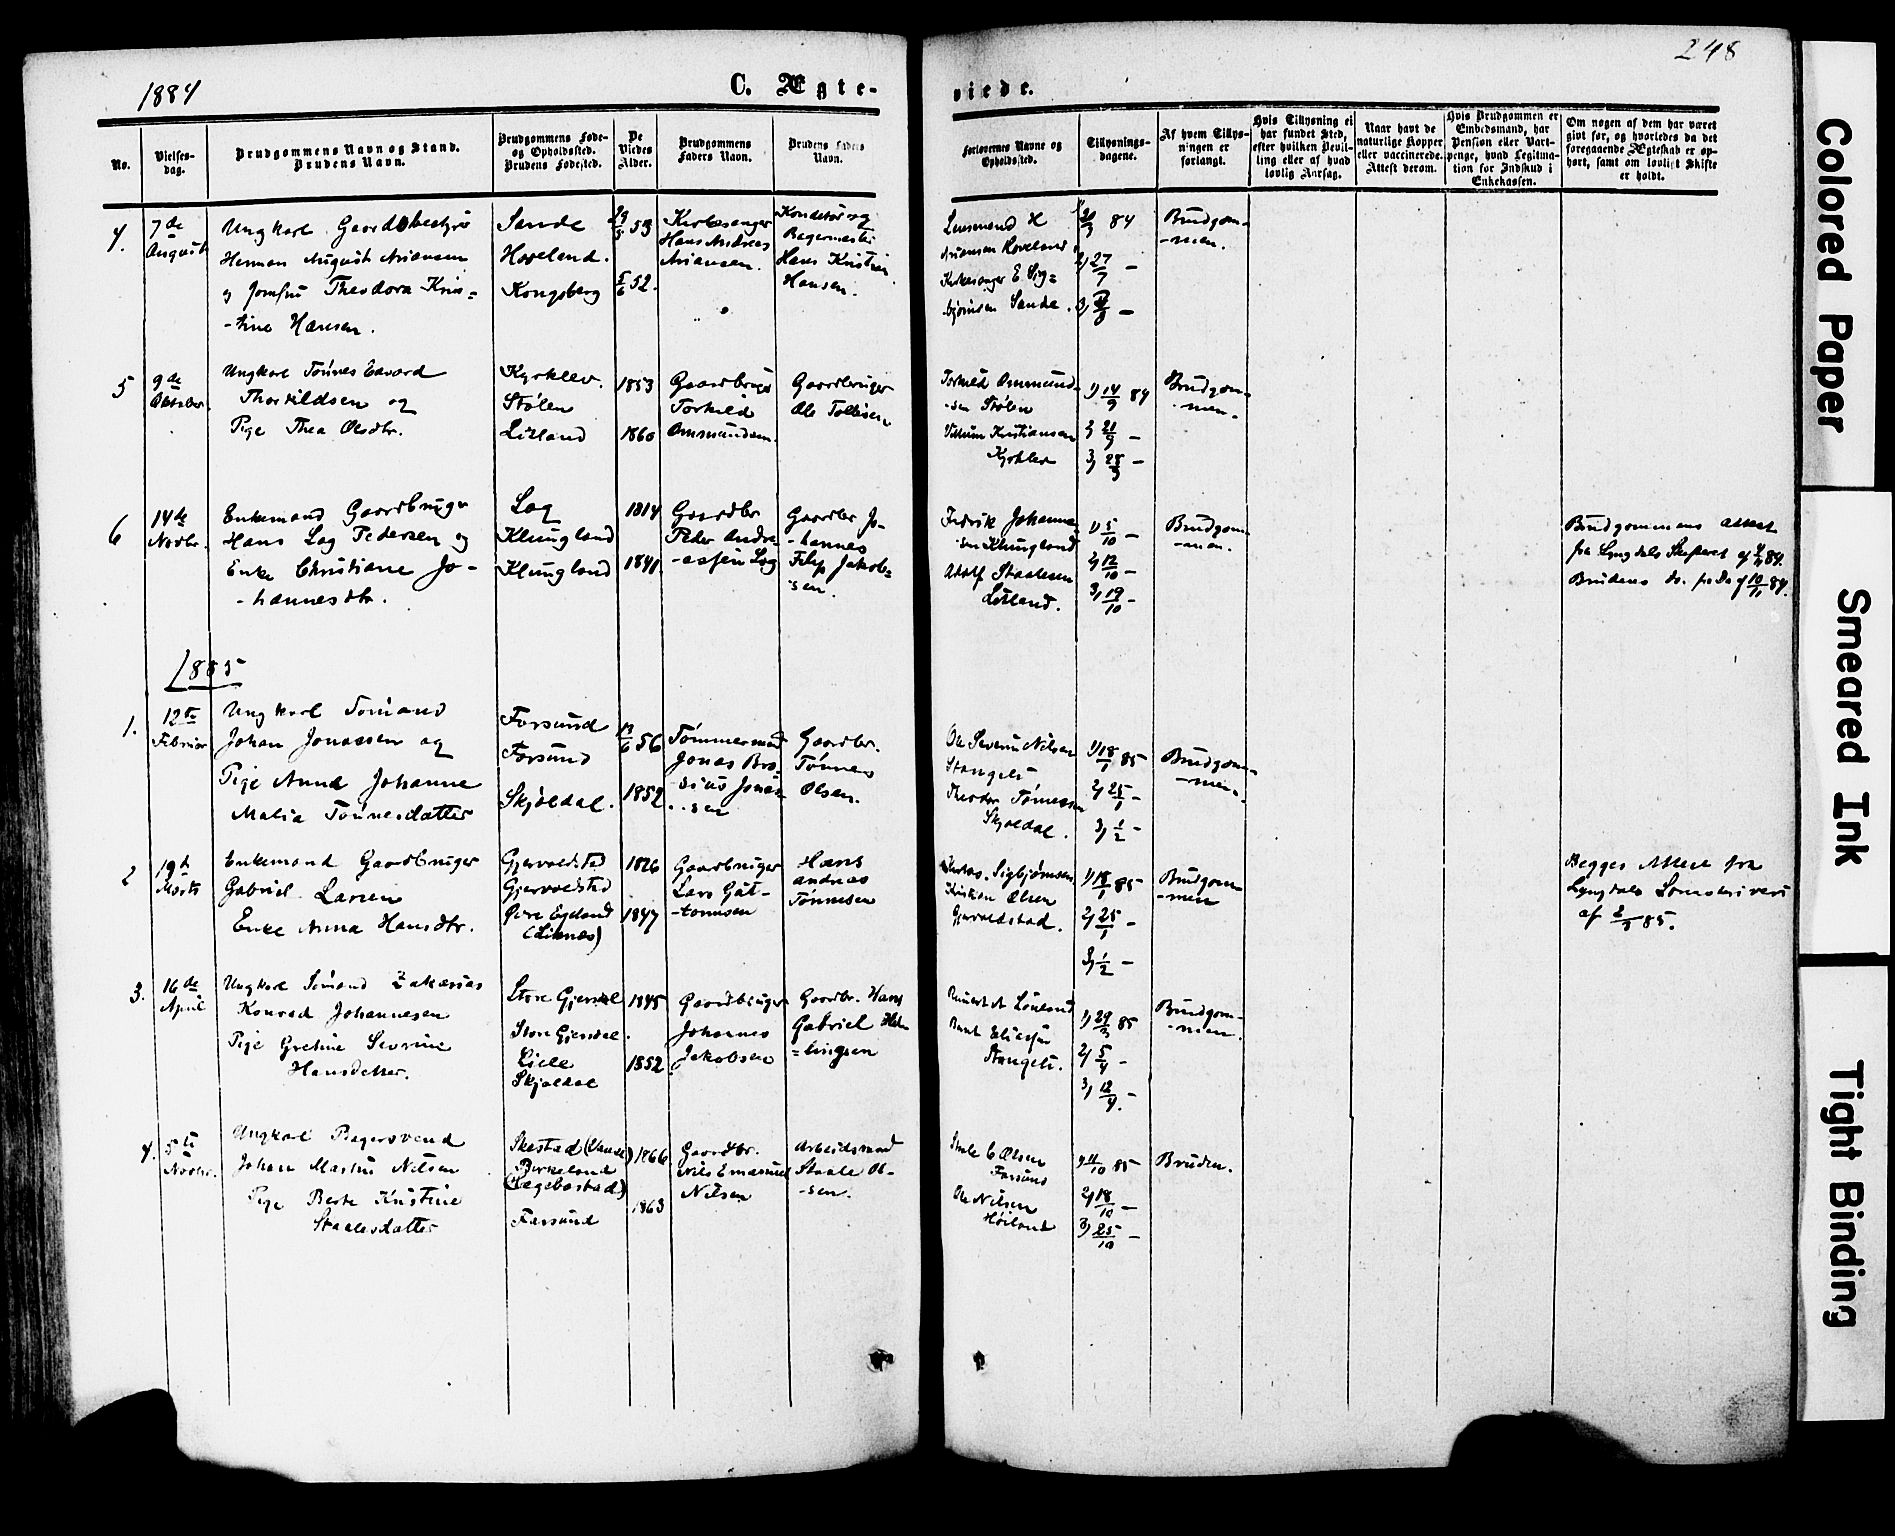 248
1884
C. Ægte-
viede.
No.
Vielses-
dag.
Brudgommens Navn og Stand.
Brudens Navn.
Brudgommens Føde-
og Opholdssted.
Brudens Fødested.
De
Viedes
Alder.
Brudgommens
Faders Navn.
Brudens Faders
Navn.
Forlovernes Navne og
Opholdssted.
Tillysnings-
dagene.
Af hvem Tillys-
ningen er
forlangt.
Hvis Tillysning ei
har fundet Sted,
efter hvilken Bevil-
ling eller af hvad
lovlig Aarsag.
Naar havt de
naturlige Kopper
eller vaccinerede.
Attest derom.
Hvis Brudgommen er
Embedsmand, har
Pension eller Vart-
penge, hvad Legitima-
tion for Indskud i
Enkekassen.
Om nogen af dem har været
givt før, og hvorledes da det
foregaaende Ægteskab er op-
hørt, samt om lovligt Skifte
er holdt.
4.
7de
August
Ungkarl Gaardsbestyrer
Herman August Ariansen
og Jomfru Theodora Kris=
-tine Hansen.
Sande
Hoveland.
Kongsberg
29/5 53
5/6 52.
Kirkesanger
Hans Andreas
Ariansen.
Konditor og
Bagermester
Hans Kristian
Hansen.
Lensmand H
Ariansen Hoveland,
Kirkesanger E. Sig=
bjørnsen Sande.
84
2, 27/7 –
Brudgom-
-men.
5
9de
Oktober.
Ungkarl Tønnes Edvard
Thorkildsen og
Pige Thea Olsdtr.
Kyrklev.
Stølen
Litland
1853
1860
Gaardbruger
Torkild
Ommundsen.
Gaardbruger
Ole Tollisen
Torkild Ommund-
-sen Stølen
Villum Kristiansen
Kyrklev
1) 14/9 84
2 21/9 –
3, 28/9 –
Brudgom-
-men.
6
14de
Novbr.
Enkemand Gaardbruger
Hans Log Pedersen og
Enke Christiane Jo-
-hannesdtr.
Log
Klungland
Klungland
1814
1841.
Gaardbr
Peder Andre-
-assen Log
Gaardbr Jo-
-hannes
Filip Jakob=
sen.
Fredrik Johannes-
-sen Klungland
Adolf Staalesen
Litland.
1) 5/10 –
2) 12/10 –
3, 19/10 –
Brudgom-
-men.
Brudgommens Attest
fra Lyngdals Skifteret af 84.
Brudens do. fra do af 10/11 84.
1885
1.
12te
Februar
Ungkarl Sømand
Johan Jonassen og
Pige Anne Johanne
Malia Tønnesdatter
Farsund
Farsund
Skjoldal.
56
1852
Tømmermand
Jonas Bro-
-sius Jonas-
-sen
Gaardbr.
Tønnes
Olsen.
Ole Severin Nilsen
Stangeli
Theodor Tønnessen
Skjoldal.
1) 18/1 85
2) 25/1 –
3, 1/2 –
Brudgom-
-men.
2
19de
Marts
Enkemand Gaardbruger
Gabriel Larsen
Enke Anna Hansdtr.
Gjervoldstad
Gjervoldstad
Øvre Egeland
(Liknes)
1826
1847
Gaardbruger
Lars Gut-
-tormsen
Hans
Andreas
Tønnesen
Sigbjørnsen
Kristian Olsen
Gjervoldstad.
1) 18/1 85
2) 25/1 –
3, 1/2 –
Brudgom-
-men
Begges Attest fra
Lyngdals Sorenskriveri
af 2/3 85.
3.
16de
April
Ungkarl Sømand Zakarias
Konrad Johannesen
Pige Gretine Severine
Hansdatter.
Store Gjersdal
Store Gjersdal.
Lille
Skjoldal
1845
1852
Gaardbruger
Johannes
Jakobsen
Gaardbr. Hans
Gabriel Hel-
=lingsen
Bernt Eliassen
Stangeli.
1) 29/3 85
2) 5/4 –
3, 12/4. –
Brudgom-
-men.
4.
5te
Novbr.
Ungkarl Bagersvend
Johan Martin Nilsen
Pige Berte Kristine
Staalesdatter
Skestad (Vanse)
Birkeland
(Hægebostad)
Farsund
1866
1863
Gaardbr.
Nils Emanuel
Nilsen
Arbeidsmand
Staale Ol-
-sen.
Staale C Olsen
Farsund
Ole Nilsen
Høiland
1) 11/10 85
2, 18/10 –
3, 25/10 –
Bruden.
Colored Paper
Smeared Ink
Tight Binding